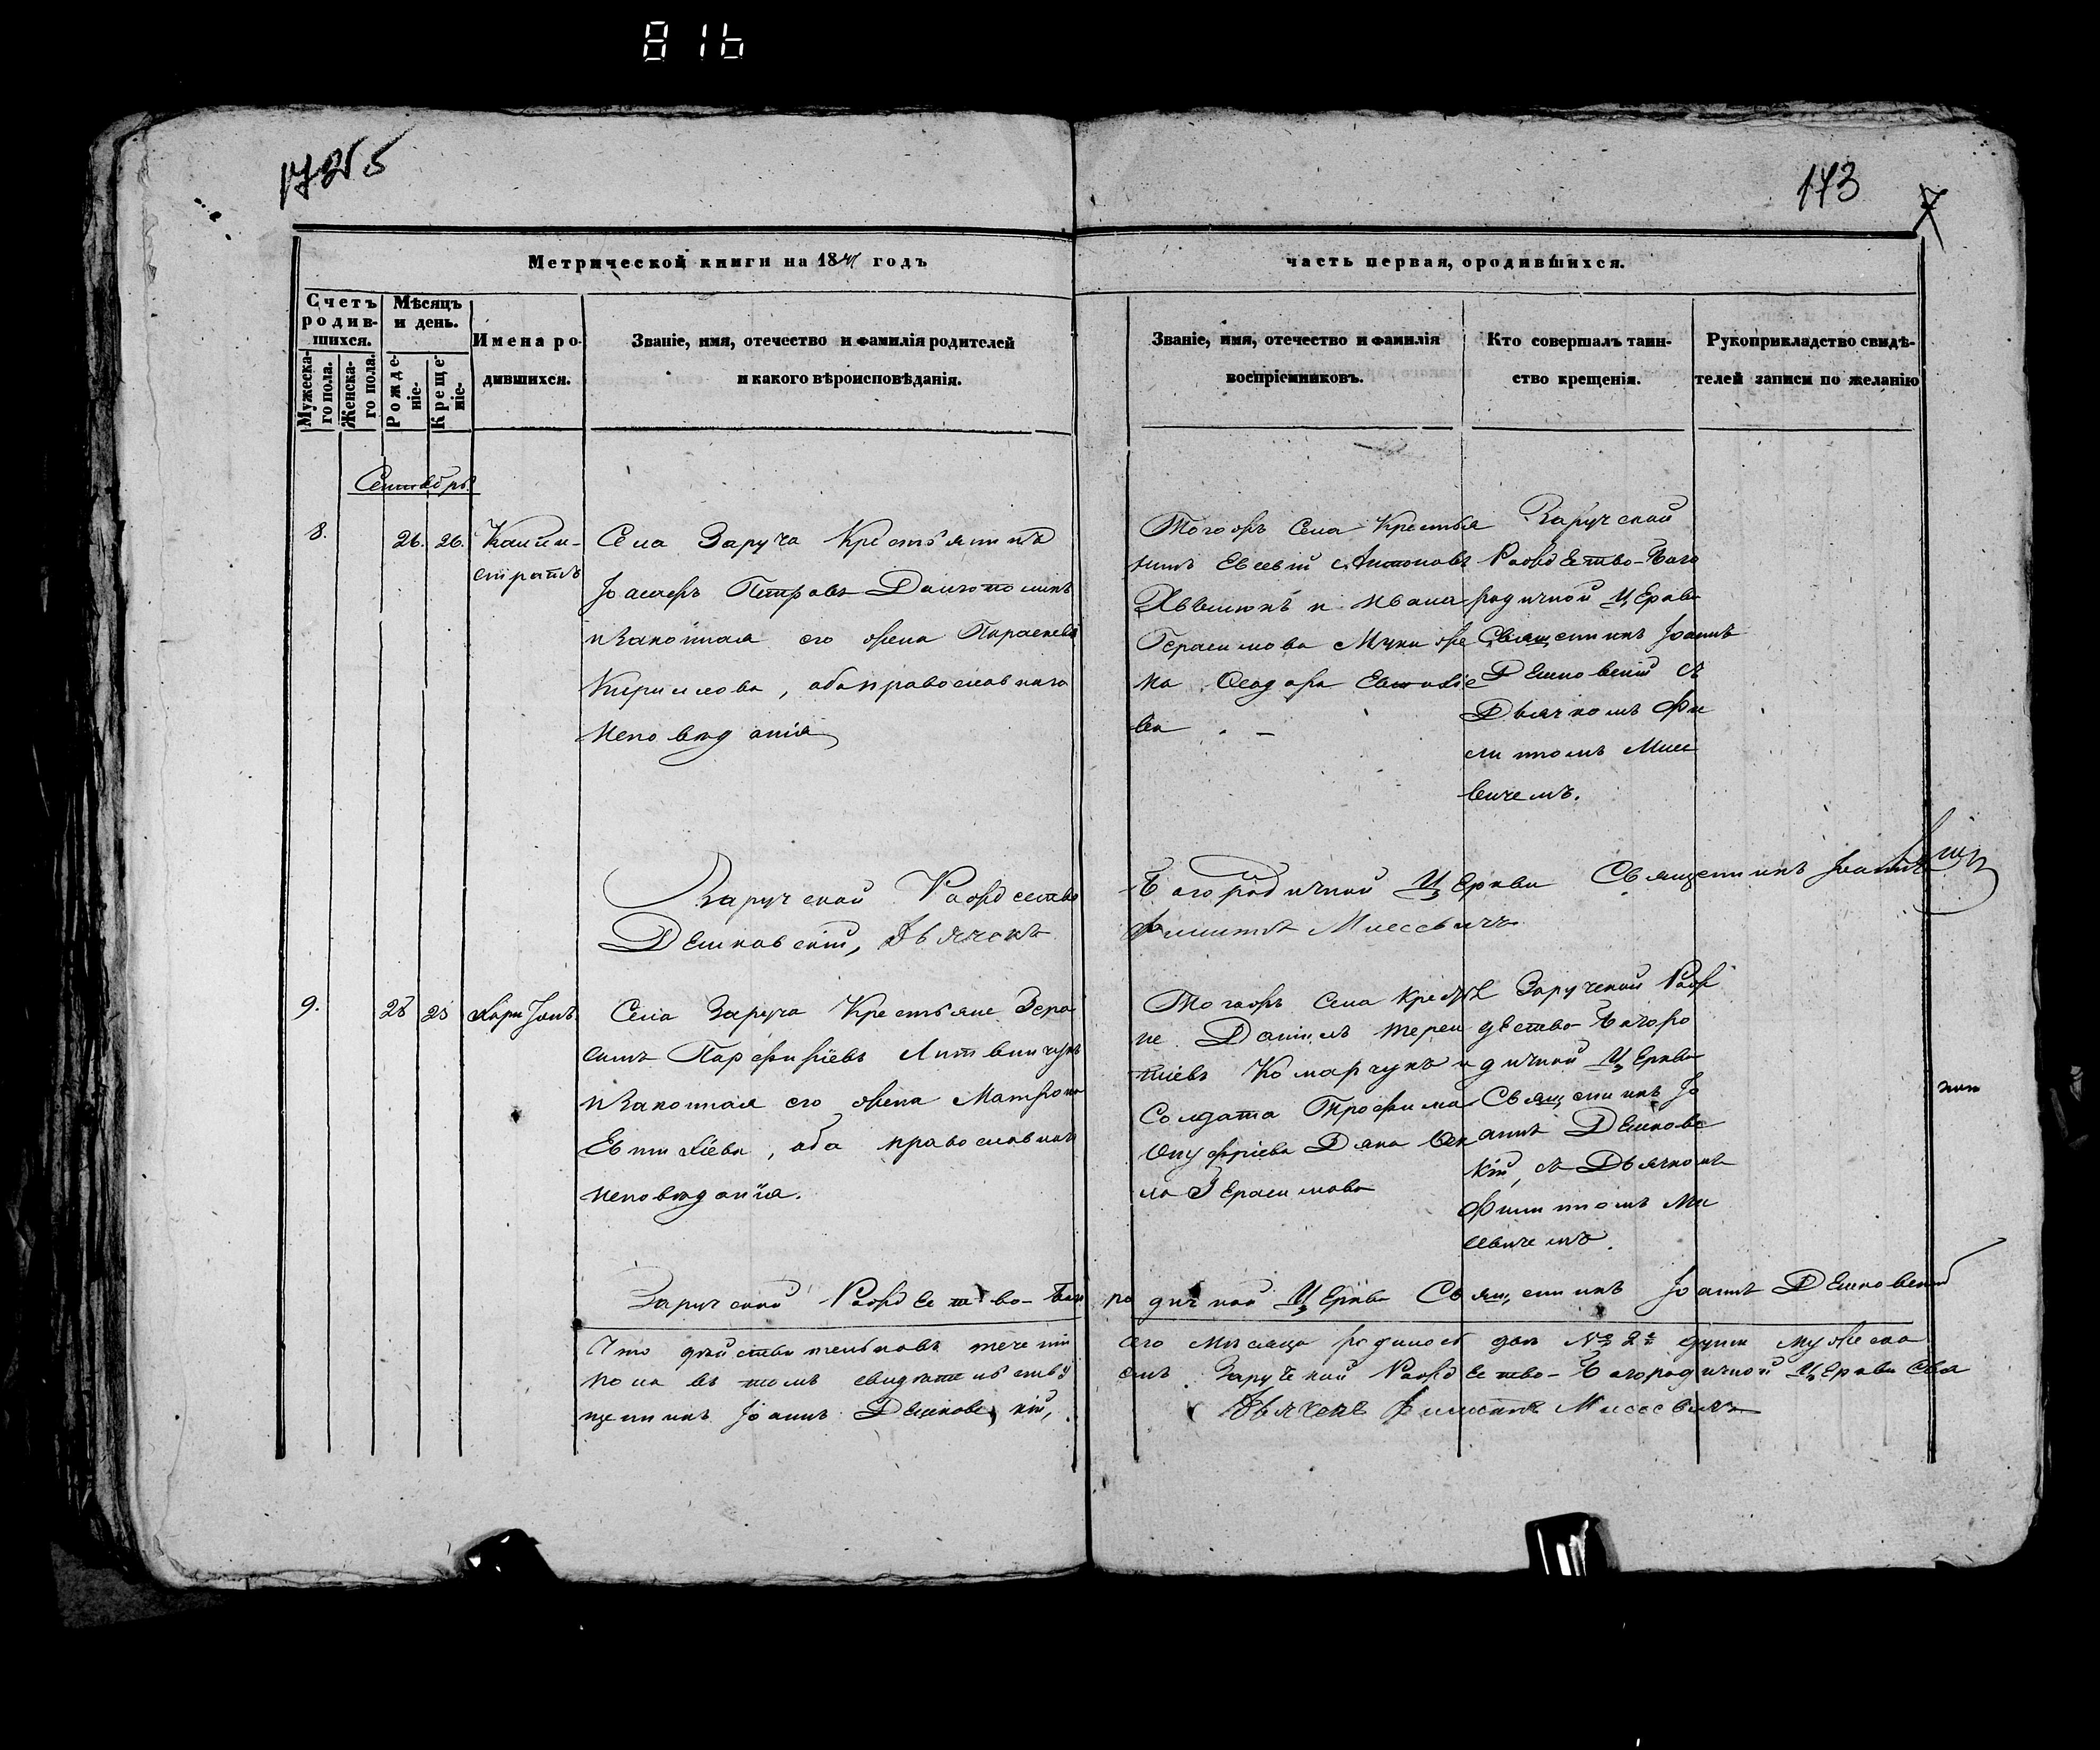 816
173
Метрической книги на 1841 годъ
часть первая, ородившихся.
Счетъ родив-шихся.
Мужеска-го пола.
Женска-го пола.
Мѣсяцъ и день.
Рожде-ніе-
Креще-ніе-
Имена ро-дившихся.
Званіе, имя, отечество и фамилія родителей
и какого вѣроисповѣданія.
Званіе, имя, отечество и фамилія
воспріемниковъ.
Кто совершалъ таин-
ство крещенія.
Рукоприкладство свидѣ-
телей записи по желанію
Сентябрь
8.
26. 26.
Калли-
стратъ
Села Заруча Крестьянинъ
Іосифъ Петровъ
изаконная его жена Параскева
Кирилова, обаправославнаго
исповѣданія
Тогожъ Села Крестья
нинъ Евсевій Антоновъ
и Ивана
Герасимова жe
на Ѳеодора Евтихіе
ва
Заручской
Рождество-Бого
родичной Церкви
Священникъ Іоаннъ
Дешковскій съ
Дьячкомъ Фи
липомъ Мисе
вичемъ.
Заручской Рождество
Богородичной Церкви Священникъ Іоаннъ
Дешковскій, Дьячекъ
Филиппъ Мисевичъ
9.
28 28
Харитонъ
Села Заруча Крестьяне Гера
симъ Парфиріевъ Литвинчукъ
изаконная его жена Матрона
Евтихіева, оба православнаго
исповѣданія.
Тогожъ Села Крестья
не Даніилъ Терен
тіевъ Комарчукъ и
Солдата Трофима
Онуфріева жена
Герасимова
Заручской Рож
дество-Богоро
дичной Церкви
Священникъ Іо
аннъ Дешковс
кій, съ Дьячкомъ
Филиппомъ Ми
севичемъ.
Заручской Рождество-Бого
родичной Церкви Священникъ Іоаннъ Дешковскій
Что дѣйствительновъ теченіи
сего мѣсяца родилось двѣ № 2е души мужеска
пола въ томъ свидѣтельствуемъ
Заруческой Рождество-Богородичной Церкви Свя
щенникъ Іоаннъ Дешковскій,
Дьячекъ Филиппъ Мисевичъ